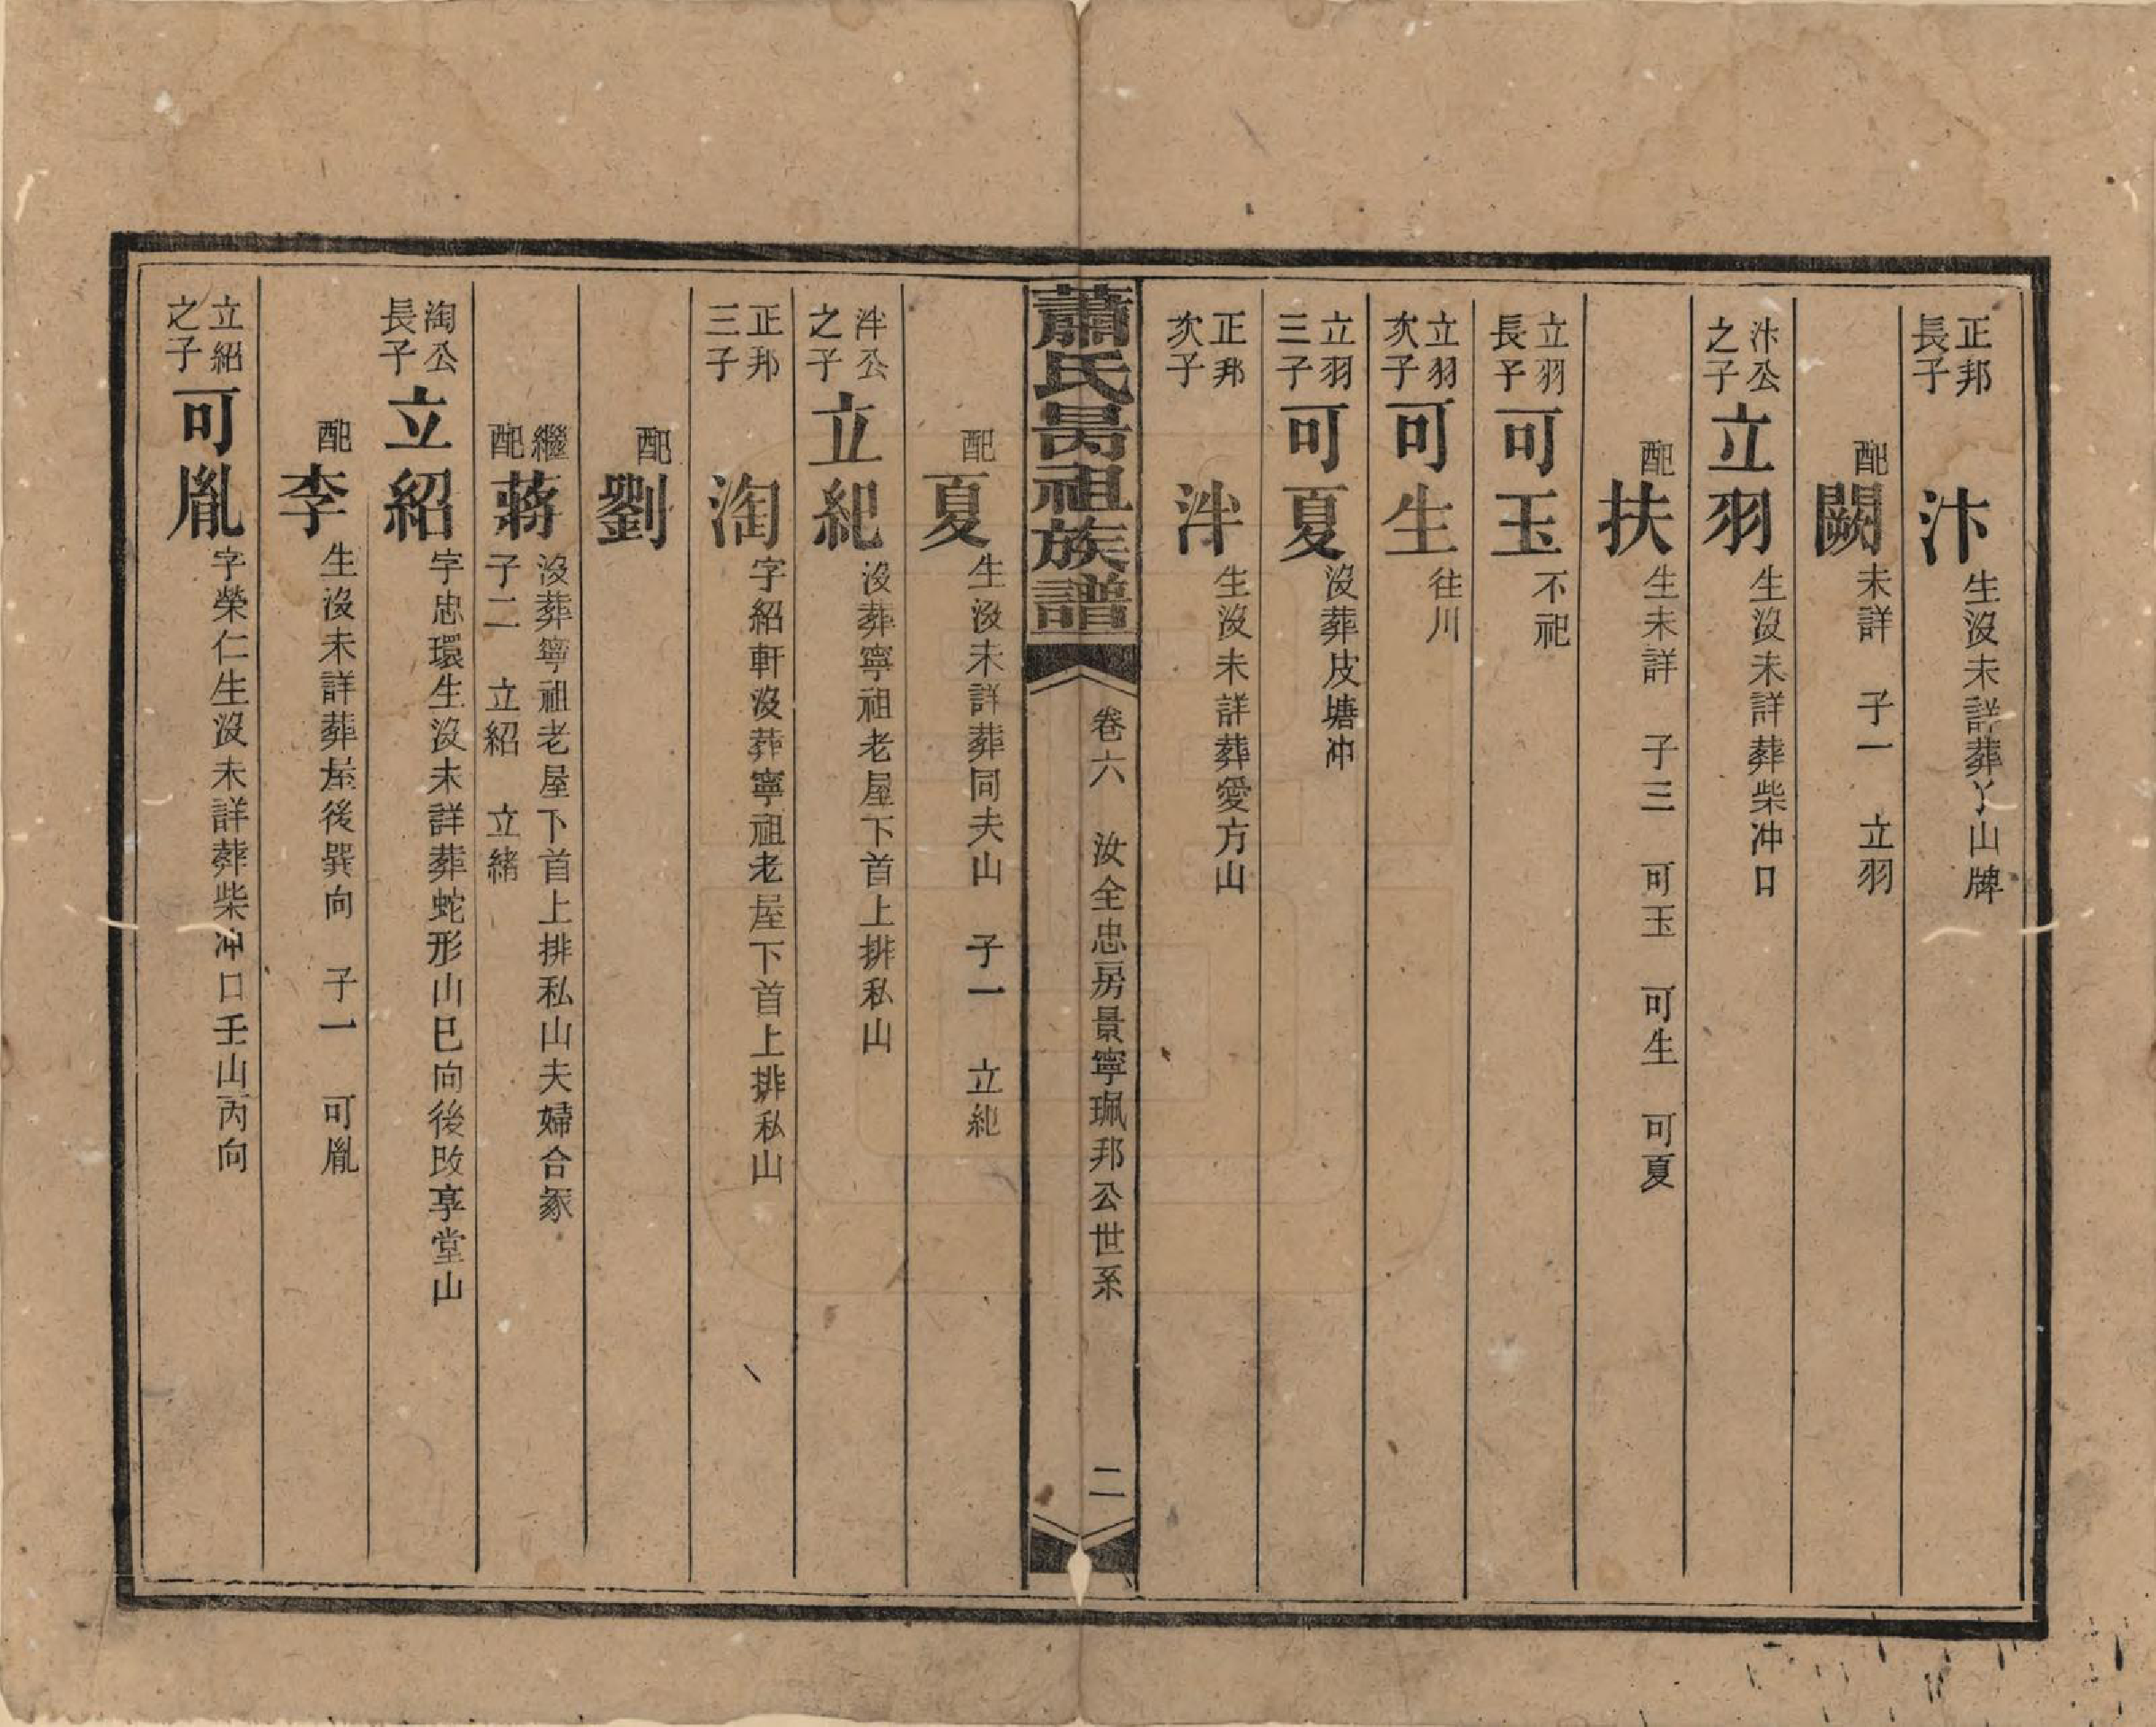 正邦長子 汴 生沒未詳葬丫山牌
配 闕 未詳 子一 立羽
汴公之子 立羽 生沒未詳葬柴冲口
配 扶 生未詳 子三 可玉 可生 可夏
立羽長子 可玉 不祀
立羽次子 可生 往川
立羽三子 可夏 沒葬皮塘冲
正邦次子 泮 生沒未詳葬愛方山
蕭氏昺祖族譜 卷六 汝全忠房景寧珮邦公世系 二
配 夏 生沒未詳葬同夫山 子一 立紀
泮公之子 立紀 沒葬寧祖老屋下首上排私山
正邦三子 淘 字紹軒沒葬寧祖老屋下首上排私山
配 劉
繼配 蔣 沒葬寧祖老屋下首上排私山夫婦合冢 子二 立紹 立緒
淘公長子 立紹 字忠環生沒未詳葬蛇形山巳向後改享堂山
配 李 生沒未詳葬屋後巽向 子一 可胤
立紹之子 可胤 字榮仁生沒未詳葬柴冲口壬山丙向